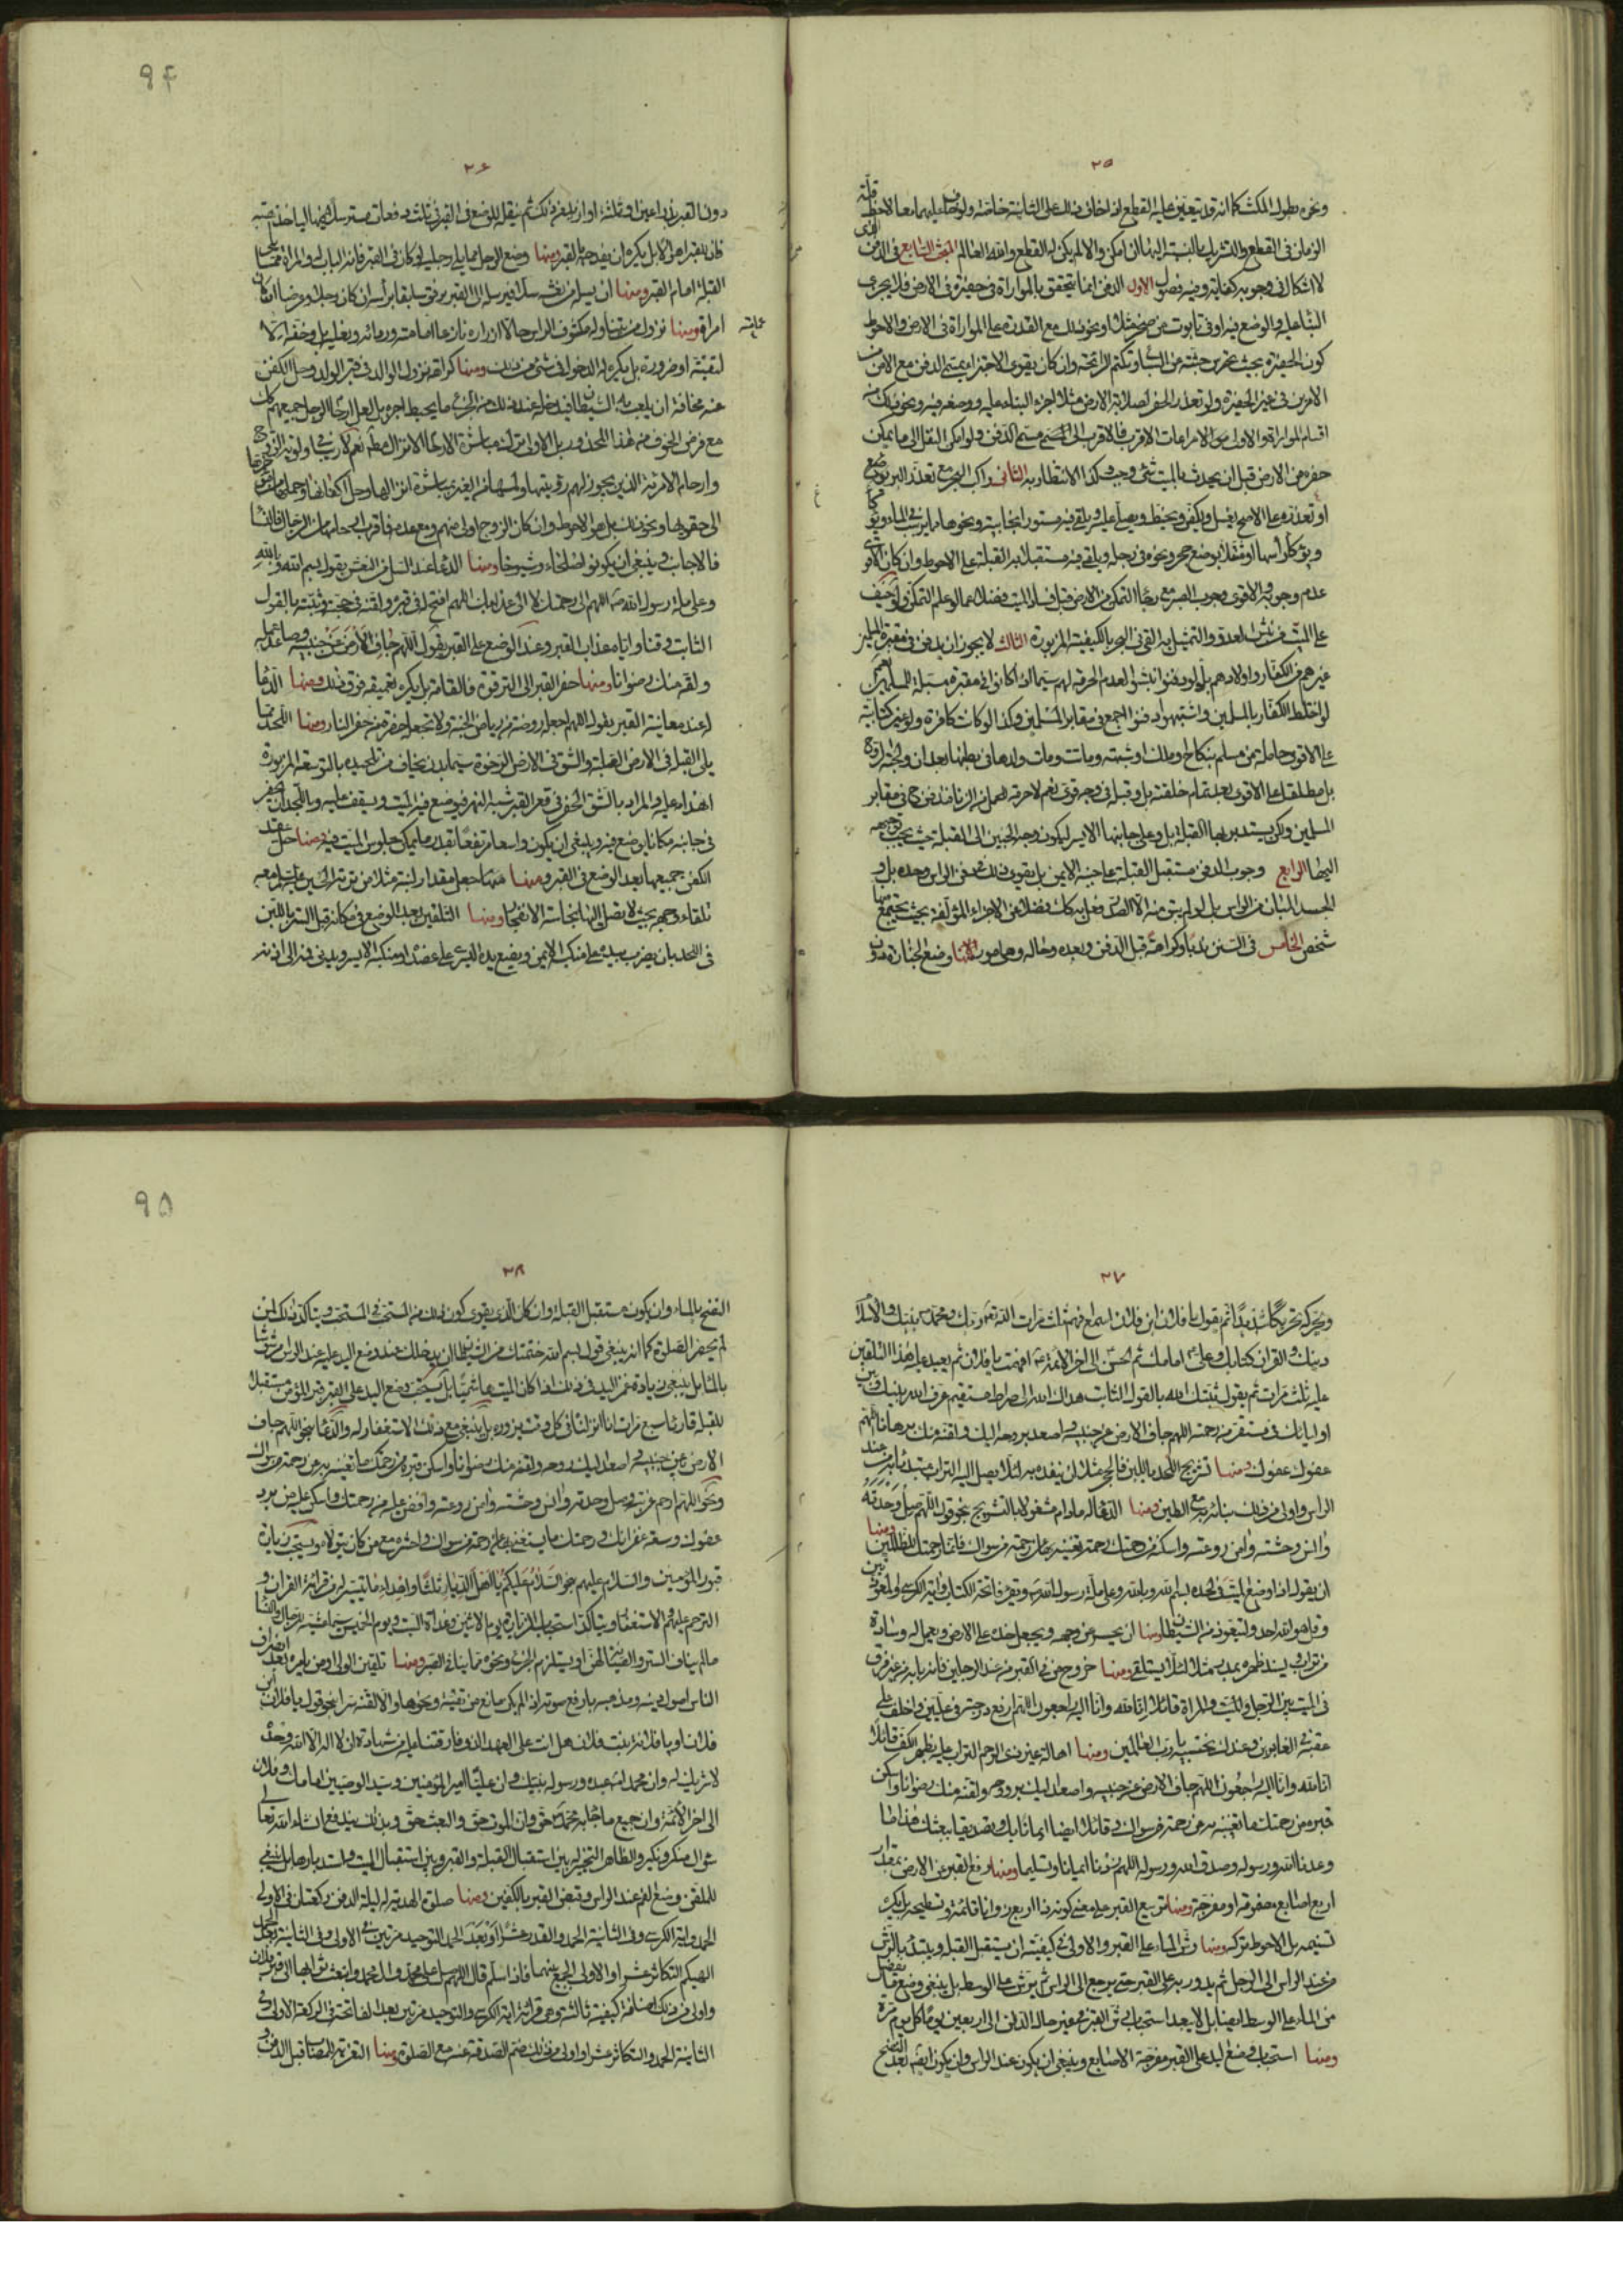 ٢٥
ونحوه بطول المكث كما انه قد يتعين عليه القطع اذا خاف ذلك على الثانية خاصة ولو خاف عليهما معا لاحظ قلة
الزمان في القطع والتشريك بالنسبة اليهما ان امكن والا لم يكن له القطع والله العالم المبحث السابع في الدفن الذي
لا اشكال في وجوبه كفاية وفيه فصول الاول الدفن انما يتحقق بالمواراة في حفيرة في الارض فلا يجزي
البناء عليه والوضع فيه او في تابوت من صخر مثلا او نحو ذلك مع القدرة على المواراة في الارض والاحوط
كون الحفيرة بحيث تحرس جثته من السباع وتكتم رائحته وان كان يقوى الاجتزاء بمسمى الدفن مع الامن من
الامرين في غير الحفيرة ولو تعذر الحفر لصلابة الارض مثلا اجزء البناء عليه ووضعه فيه ونحو ذلك من
اقسام المواراة والاولى بل الاحوط مراعات الاقرب فالاقرب الى مسمى الدفن ولو امكن النقل الى ما يمكن
حفره من الارض قبل ان يحدث بالميت شئ وجب وكذا الانتظار به الثاني راكب البحر مع تعذر البر
او تعذره على الاصح يغسل ويكفن ويحنط ويصلى عليه ويلقى فيه مستورا بخابية ونحوها
ويوكأ رأسها او مثقلا بوضع حجر ونحوه في رجله ويلقى فيه مستقبلا به القبلة على الاحوط وان كان الاقوى
عدم وجوبه والاقوى وجوب الصبر مع رجاء التمكن من الارض قبل فساد الميت فضلا عما لو علم التمكن ولو خيف
على الميت من نبش العدو والتمثيل به القي في البحر بالكيفية المزبورة الثالث لا يجوز ان يدفن في مقبرة المسلمين
غيرهم من الكفار واولادهم بل لو دفنوا نبشوا لعدم الحرمة لهم سيما اذا كان في مقبرة مسبلة للمسلمين نعم
لو اختلط الكفار بالمسلمين واشتبهوا دفنوا اجمع في مقابر المسلمين وكذا لو كانت كافرة ولو غير كتابية
على الاقوى حاملة من مسلم بنكاح او ملك او شبهة وماتت ومات ولدها في بطنها بعد ان ولجته الروح
بل مطلقا على الاقوى بعد تمام خلقته بل وقبله في وجه قوي نعم لا حرمة لحمل الزنا فتدفن ح في مقابر
المسلمين ولكن يستدبر بها القبلة بل وعلى جانبها الايسر ليكون وجه الجنين الى القبلة حيث يجب توجيهه
اليها الرابع وجوب الدفن مستقبل القبلة على جنبه الايمن بل يقوى ذلك في دفن الراس وحده بل و
الجسد المبان منه الراس بل لو لم يبق منه الا الصدر فعل به كك فضلا عن الاجزاء المؤلفة بحيث يجتمع منها
شخص الخامس في السنن ندبا وكراهة قبل الدفن وبعده وحاله وهي امور منها وضع الجنازة
٩۴
٢۶
دون القبر بذراعين او ثلثة او ازيد من ذلك ثم ينقل للوضع في القبر في ثلث دفعات مترسلا فيها ليأخذ اهبته
القبلة امام القبر ومنها ان يسل من نعشه سلا فيرسله الى القبر برفق سابقا برأسه ان كان رجلا وعرضا ان كان
امراة ومنها نزول من يتناوله مكشوف الراس حالا ازراره نازعا عمامته وردائه ونعليه بل وخفه الا
لتقية او ضرورة بل يكره له الدخول في شئ من ذلك ومنها كراهة نزول الوالد في قبر الولد وحل الكفن
عنه مخافة ان يلعب به الشيطان فيدخله عند ذلك من الجزع ما يحبط اجره بل لعل ارحام الرجل جميعهم كك
وارحام الامرئة الذين يجوز لهم رؤيتها
الى حقويها ونحو ذلك بل هو الاحوط وان كان الزوج اولى منهم ومع عدمه فاقرب ارحامها من الرجال فالنساء
فالاجانب وينبغي ان يكونوا صلحاء وشيوخا ومنها الدعاء عند السل من النعش بقول بسم الله وبالله
وعلى ملة رسول الله ص اللهم الى رحمتك لا الى عذابك اللهم افتح له في قبره ولقنه حجته وثبته بالقول
الثابت وقنا واياه عذاب القبر وعند الوضع على القبر بقول اللهم جاف الارض عن جنبيه وصاعد عمله
ولقه منك رضوانا ومنها حفر القبر الى الترقوة فالقامة بل يكره تعميقه فوق ذلك ومنها الدعاء
له عند معاينة القبر بقول اللهم اجعله روضة من رياض الجنة ولا تجعله حفرة من حفر النار ومنها اللحد مما
يلي القبلة في الارض الصلبة والشق في الارض الرخوة
في جانبه مكانا يوضع فيه وينبغي ان يكون واسعا مرتفعا بقدر ما يمكن جلوس الميت فيه ومنها حل عقد
الكفن جميعها بعد الوضع في القبر ومنها جعل مقدار لبنة مثلا من تربة الحسين ع
تلقاء وجهه بحيث لا يصل اليها نجاسة الانفجار ومنها التلقين بعد الوضع في مكانه قبل الستر باللبن
في اللحد بان يضرب بيده على منكبه الايمن ويضع يده اليسرى على عضده او منكبه الايسر ويدني فمه الى اذنه
٢٧
ويحركه تحريكا شديدا ثم يقول يا فلان ابن فلان اسمع افهم ثلث مرات الله ربك ومحمد ص نبيك والاسلام
دينك والقران كتابك وعلي ع امامك ثم الحسن الى اخر الائمة ع افهمت يا فلان ثم يعيد عليه هذا التلقين
عليه ثلث مرات ثم يقول ثبتك الله بالقول الثابت هداك الله الى صراط مستقيم عرف الله بينك وبين
اوليائك في مستقر من رحمته اللهم جاف الارض عن جنبيه واصعد بروحه اليك ولقنه منك برهانا اللهم
عفوك عفوك ومنها تشريج اللحد باللبن فالحجر مثلا لئلا يصل اليه التراب مبتدئا من عند
الراس واولى من ذلك بنائه مع الطين ومنها الدعاء له مادام مشغولا بالتشريج بنحو قول اللهم صل وحدته
وانس وحشته وامن روعته واسكنه من رحمتك رحمة تغنيه بها عن رحمة من سواك فانما رحمتك للظالمين ومنها
ان يقول اذا وضع الميت في لحده بسم الله وبالله وعلى ملة رسول الله ص ويقرء فاتحة الكتاب واية الكرسي والمعوذتين
وقل هو الله احد والتعوذ من الشيطان ومنها ان يحسر عن وجهه ويجعل خده على الارض ويعمل له وسادة
من تراب ويسند ظهره بمدرة مثلا لئلا يستلقي ومنها خروج من في القبر من عند الرجلين فانه بابه من غير فرق
في الميت بين الرجل والمراة قائلا انا لله وانا اليه راجعون اللهم ارفع درجته في عليين واخلف على
عقبه في الغابرين وعندك نحتسبه يا رب العالمين ومنها اهالة غير ذي الرحم التراب عليه بظهر الكف قائلا
انا لله وانا اليه راجعون اللهم جاف الارض عن جنبيه واصعد اليك بروحه ولقه منك رضوانا واسكن
قبره من رحمتك ما تغنيه به عن رحمة من سواك وقائلا ايضا ايمانا بك وتصديقا ببعثك هذا ما
وعدنا الله ورسوله وصدق الله ورسوله اللهم زدنا ايمانا وتسليما ومنها رفع القبر عن الارض بمقدار
اربع اصابع مضمومة او مفرجة ومنها تربيع القبر على معنى كونه ذا اربع زوايا قائمة وتسطيحه بل يكره
تسنيمه بل الاحوط تركه ومنها رش الماء على القبر والاولى في كيفيته ان يستقبل القبلة ويبتدء بالرش
من عند الراس الى الرجل ثم يدور به على القبر حتى يرجع الى الراس ثم يرش على الوسط بل ينبغي وضع ما يفضل
من الماء على الوسط ايضا بل لا يبعد استحباب رش القبر في غير حال الدفن الى اربعين يوما كل يوم مرة
ومنها استحباب وضع اليد على القبر مفرجة الاصابع وينبغي ان يكون عند الراس وان يكون ايضا بعد النضح
٩۵
٢٨
النضح بالماء وان يكون مستقبل القبلة وان كان الذي يقوى كون ذلك من المستحب في المستحب ويتأكد ذلك لمن
لم يحضر الصلوة كما انه ينبغي قول بسم الله ختمتك من الشيطان ان يدخلك عند وضع اليد عليه عند الراس
للقبلة قارئا سبع مرات انا انزلناه في كل وقت يزوره بل ينبغي مع ذلك الاستغفار له والدعاء بنحو اللهم جاف
الارض عن جنبيه واصعد اليك روحه ولقه منك رضوانا واسكن قبره من رحمتك ما تغنيه به عن رحمة من سواك
ونحو اللهم ارحم غربته وصل وحدته وانس وحشته وامن روعته وافض عليه من رحمتك واسكن اليه من برد
عفوك وسعة غفرانك ورحمتك ما يستغني بها عن رحمة من سواك واحشره مع من كان يتولاه ويستحب زيارة
قبور المؤمنين والسلام عليهم بنحو السلام عليكم يا اهل الديار ثلثا واهداء ما تيسر له من قرائة القران و
الترحم عليهم والاستغفار ويتاكد استحباب الزيارة يوم الاثنين وغداة السبت ويوم الخميس سيما عشيته للرجال والنساء
مالم يناف الستر والصيانة لهن او يستلزم الجزع ونحوه مما ينافي الصبر ومنها تلقين الولي او من يامره بعد انصراف
الناس اصول دينه ومذهبه بارفع صوته اذا لم يكن مانع من تقية ونحوها والا لقنه سرا بنحو قول يا فلان ابن
فلان او يا فلانة بنت فلان هل انت على العهد الذي فارقتنا عليه من شهادة ان لا اله الا الله وحده
لا شريك له وان محمدا عبده ورسوله نبيك وان عليا امير المؤمنين وسيد الوصيين امامك وفلان
الى اخر الائمة وان جميع ما جاء به محمد حق وان الموت حق والبعث حق وبذلك يندفع ان شاء الله تعالى
سؤال منكر ونكير والظاهر التخيير بين استقبال القبلة والقبر وبين استقبال الميت واستدبارها بل ينبغي
للملقن وضع الفم عند الراس وقبض القبر بالكفين ومنها صلوة الهدية له ليلة الدفن ركعتان في الاولى
الحمد واية الكرسي وفي الثانية الحمد والقدر عشرا او بعد الحمد التوحيد مرتين في الاولى وفي الثانية بعد الحمد
الهيكم التكاثر عشرا والاولى الجمع بينهما فاذا سلم قال اللهم صل على محمد وال محمد وابعث ثوابها الى قبر فلان
واولى من ذلك اضافة كيفية ثالثة وهي قرائة اية الكرسي والتوحيد مرتين بعد الفاتحة في الركعة الاولى وفي
الثانية الحمد والتكاثر عشرا واولى من ذلك ضم الصدقة عنه مع الصلوة ومنها التعزية للمصاب قبل الدفن و